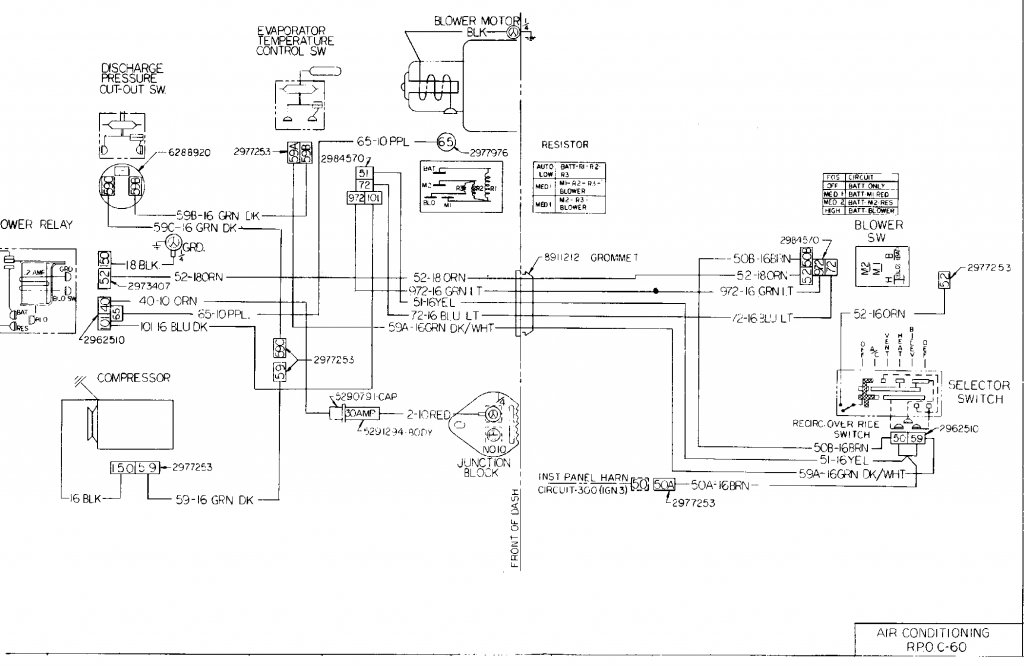 BLOWER MOTOR
BLK
EVAPORATOR
TEMPERATURE
CONTROL SW
DISCHARGE
PRESSURE
CUT-OUT SW.
6288920
2977253
59A
59B
65-10 PPL
65
2977976
2984570
51
72
972
101
BAT
M2
BLO
M1
R3
R1
RESISTOR
AUTO LOW
BATT-R1-R2-
R3
MED 1
M1-R2-R3-
BLOWER
MED 1
M2-R3-
BLOWER
POS
CIRCUIT
OFF
BATT ONLY
MED 1
BATT-M1 RED
MED 2
BATT-M2-RES
HIGH
BATT-BLOWER
BLOWER
SW
2984570
50B
52
972
72
M2
M1
H
B
2977253
52
59C
59B
59B-16 GRN DK
59C-16 GRN DK
GRD.
OWER RELAY
2 AMP
GRD
BLO SW
BAT
BLO
RES
50
52
18 BLK.
52-18ORN
2973407
40
65
101
40-10 ORN
65-10 PPL.
101 16 BLU DK
2962510
8911212 GROMMET
52-18 ORN
972-16 GRN LT
51-16YEL
72-16 BLU LT
59A-16GRN DK/WHT
50B-16BRN
52-18ORN
972-16 GRN LT
72-16 BLU LT
52-16ORN
59C
59
2977253
COMPRESSOR
150
59
2977253
16 BLK
59-16 GRN DK
5290791-CAP
30AMP
5291294-BODY
2-10RED
NO10
JUNCTION
BLOCK
OFF
A/C
VENT
HEAT
BILEV
DEF
SELECTOR
SWITCH
RECIRC. OVER RIDE
SWITCH
2962510
50
59
50B-16BRN
51-16YEL
59A-16GRN DK/WHT
INST PANEL HARN
CIRCUIT-300 (IGN 3)
50
50A
50A-16BRN
2977253
FRONT OF DASH
AIR CONDITIONING
R.P.O. C-60